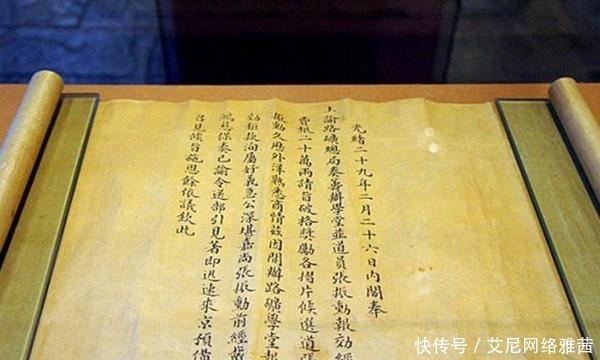 光緒二十九年二月二十六日內閣奉
上諭路礦總局奏籌辦學堂並道員張振勳報効經
費銀二十萬兩請旨破格獎勵各摺片候選道張
振勳久歷外洋熟悉商情茲因開辦路礦學堂報
効鉅款洵屬好義急公深堪嘉尚張振勳前經戴
鴻慈保奏已諭令送部引見著即迅速來京預備
召見候旨施恩餘依議欽此
快传号 / 艾尼网络雅茜